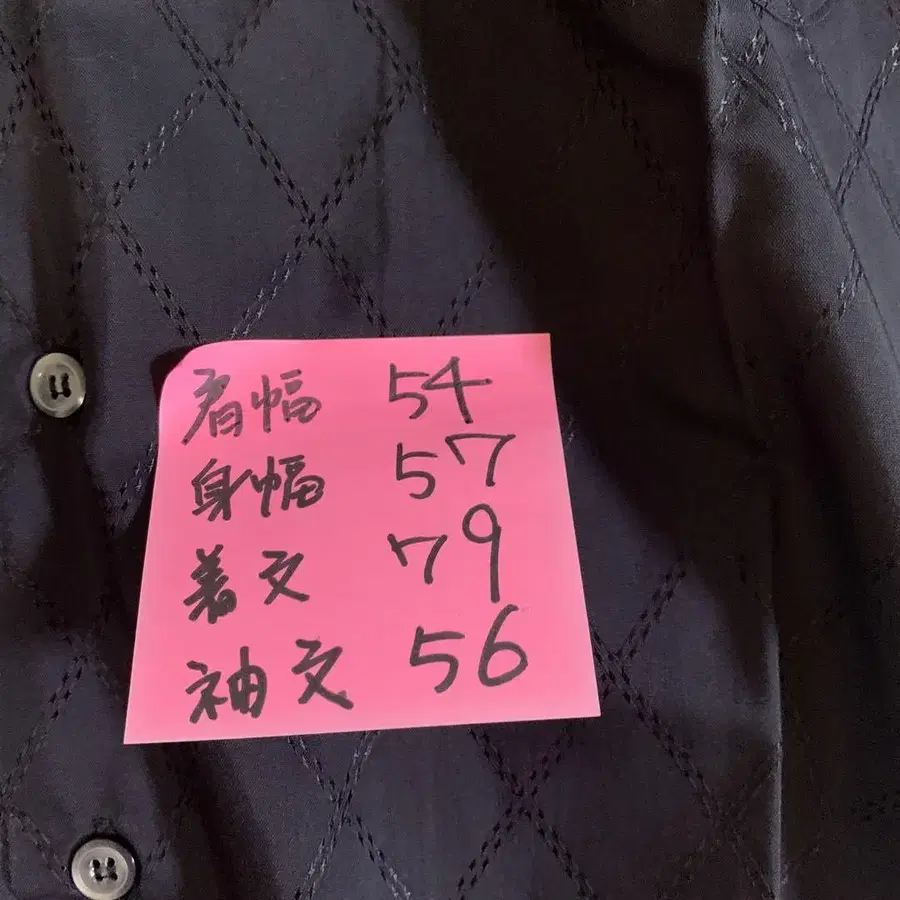 肩幅 54
身幅 57
着丈 79
袖丈 56